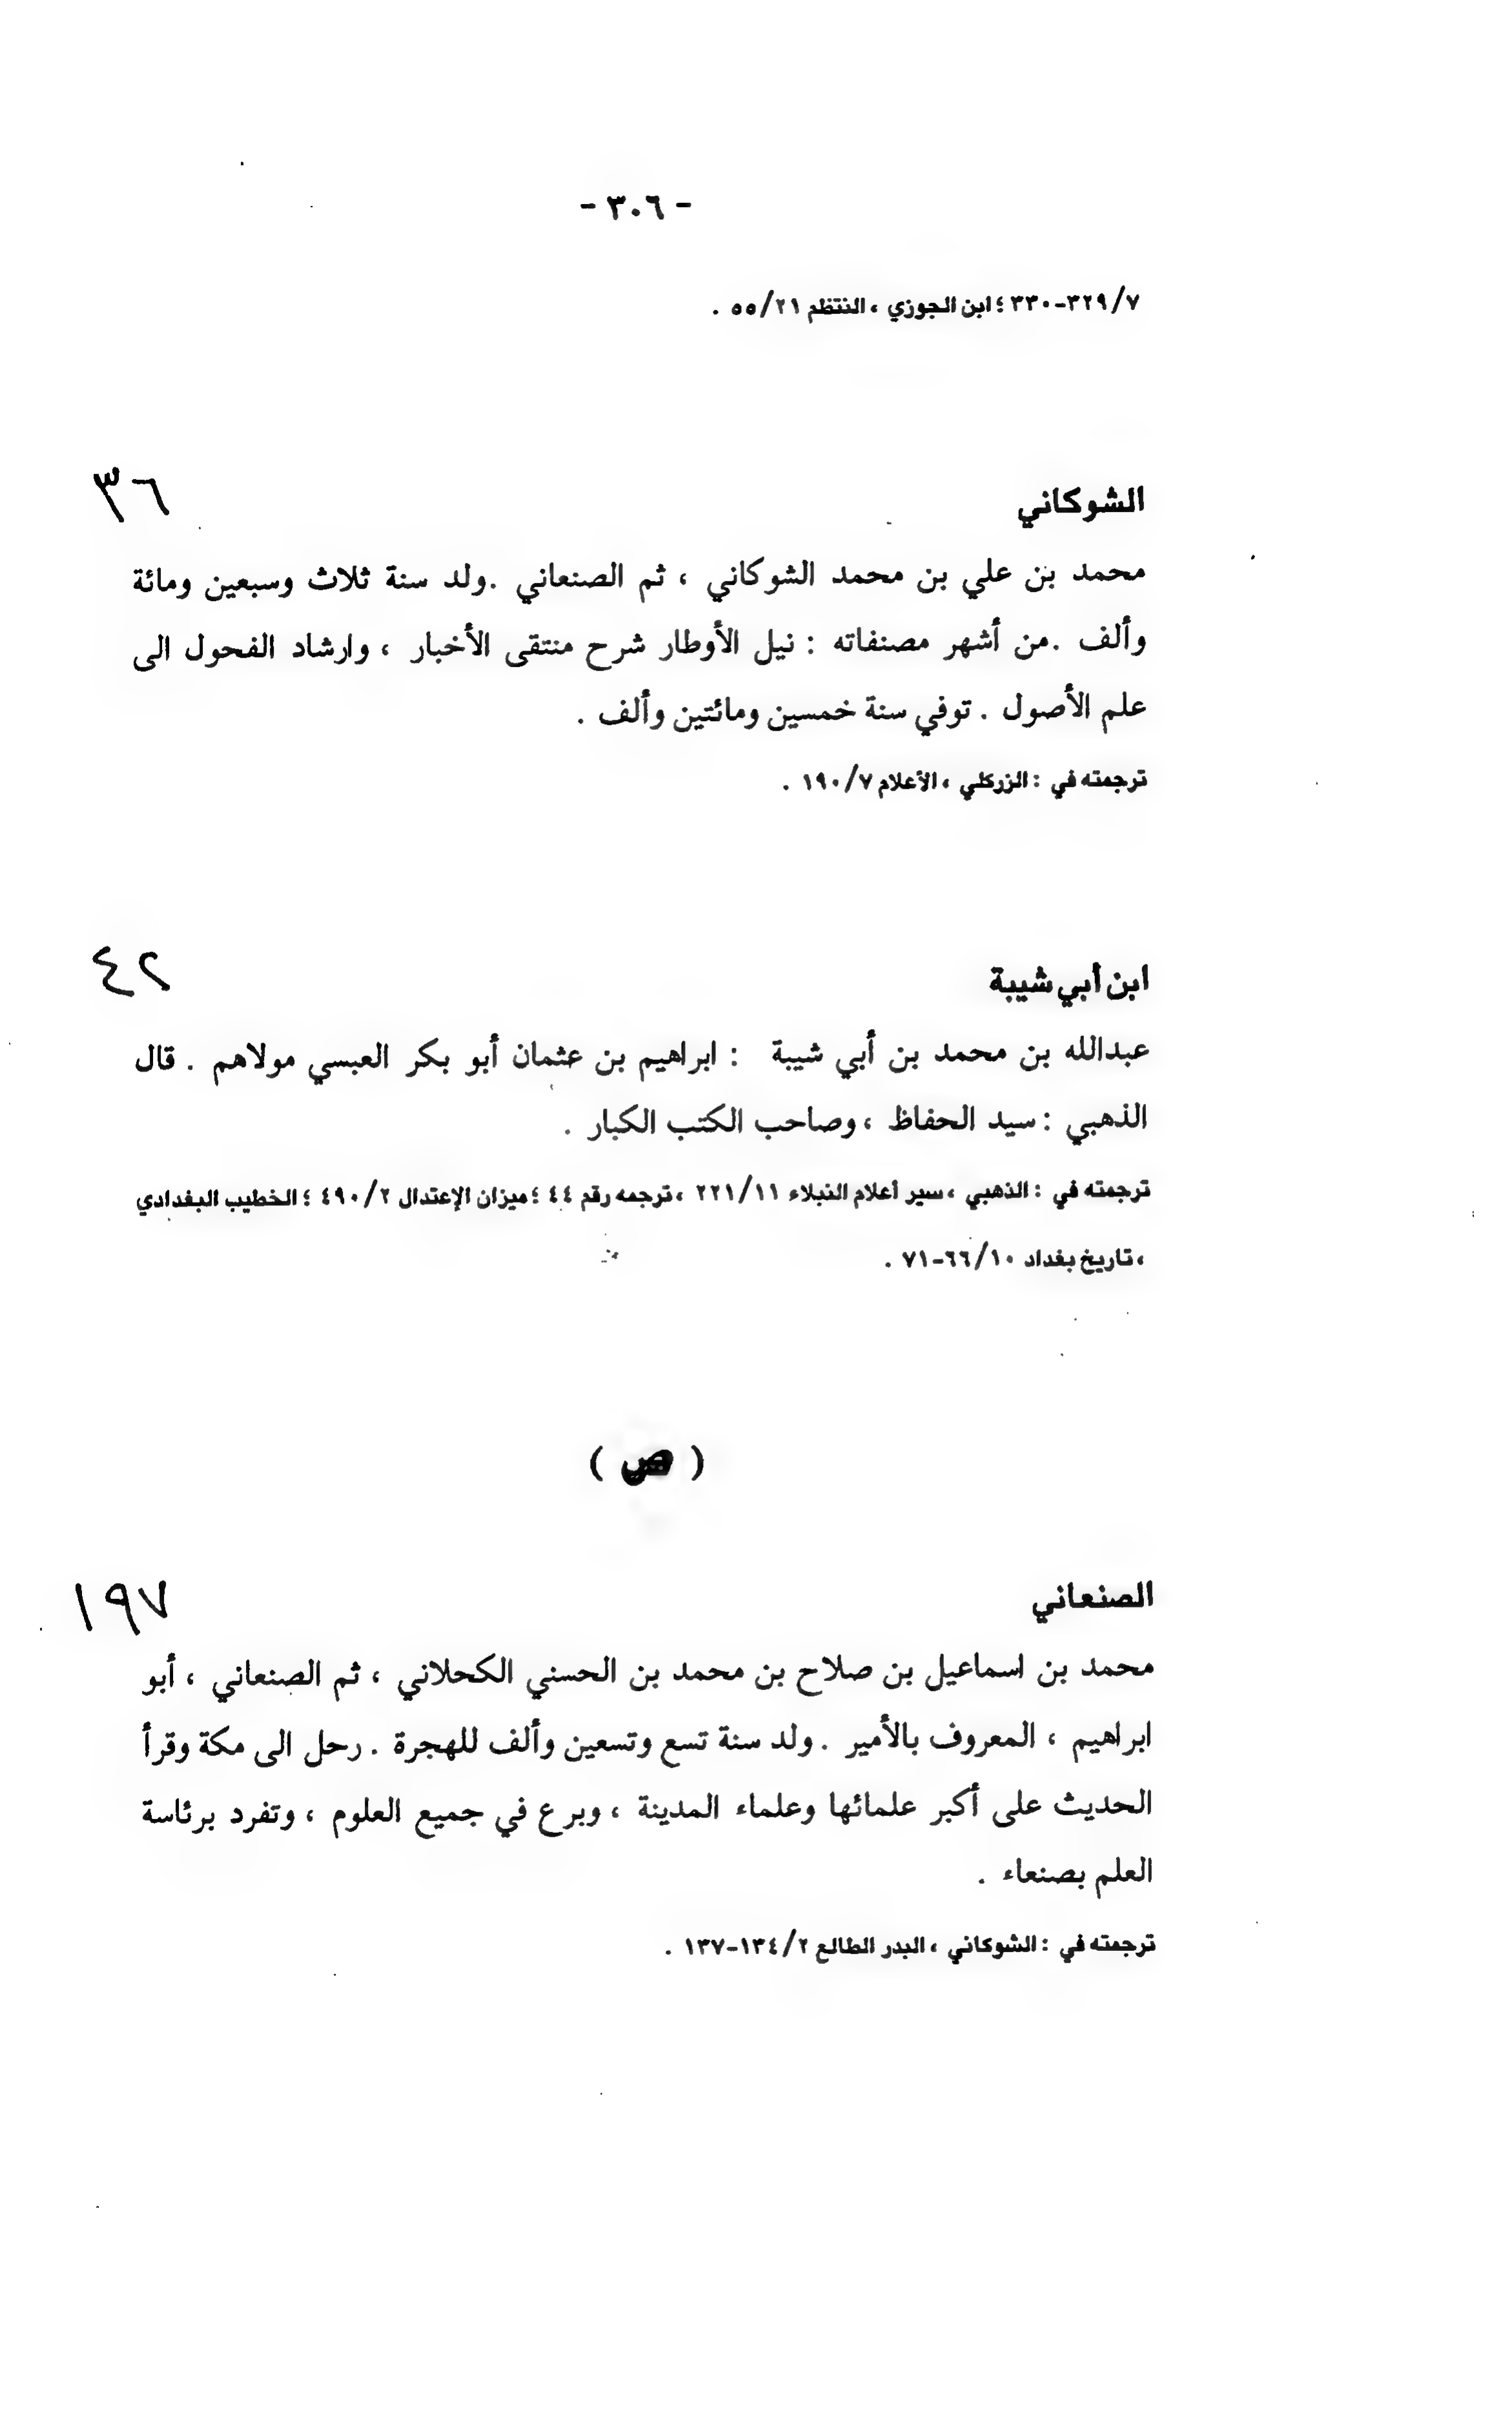 - ٣٠٦ -
٣٢٩/٧-٣٣٠ ؛ ابن الجوزي ، النتظم ٥٥/٢١ .
الشوكاني ٣٦
محمد بن علي بن محمد الشوكاني ، ثم الصنعاني .ولد سنة ثلاث وسبعين ومائة
وألف .من أشهر مصنفاته : نيل الأوطار شرح منتقى الأخبار ، وارشاد الفحول الى
علم الأصول . توفي سنة خمسين ومائتين وألف .
ترجمته في : الزركلي ، الأعلام ١٩٠/٧ .
ابن أبي شيبة ٤٢
عبدالله بن محمد بن أبي شيبة : ابراهيم بن عثمان أبو بكر العبسي مولاهم . قال
الذهبي : سيد الحفاظ ، وصاحب الكتب الكبار .
ترجمته في : الذهبي ، سير أعلام النبلاء ٢٢١/١١ ، ترجمه رقم ٤٤ ؛ ميزان الإعتدال ٤٩٠/٢ ؛ الخطيب البغدادي
، تاريخ بغداد ٦٦/١٠-٧١ .
( ص )
الصنعاني ١٩٧
محمد بن اسماعيل بن صلاح بن محمد بن الحسني الكحلاني ، ثم الصنعاني ، أبو
ابراهيم ، المعروف بالأمير . ولد سنة تسع وتسعين وألف للهجرة . رحل الى مكة وقرأ
الحديث على أكبر علمائها وعلماء المدينة ، وبرع في جميع العلوم ، وتفرد برئاسة
العلم بصنعاء .
ترجمته في : الشوكاني ، البدر الطالع ١٣٤/٢-١٣٧ .